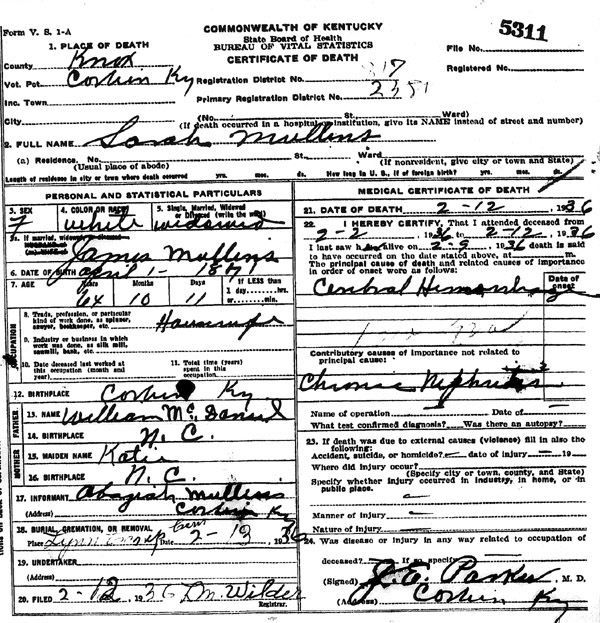 Form V. S. 1-A
COMMONWEALTH OF KENTUCKY
State Board of Health
BUREAU OF VITAL STATISTICS
CERTIFICATE OF DEATH
5311
File No.
Registered No.
1. PLACE OF DEATH
County Knox
Vot. Pct. Corbin Ky
Inc. Town
City
Registration District No. 317
Primary Registration District No. 2351
(No. St. Ward)
(If death occurred in a hospital or institution, give its NAME instead of street and number)
2. FULL NAME Sarah Mullins
(a) Residence. No. St. Ward
(Usual place of abode) (If nonresident, give city or town and State)
Length of residence in city or town where death occurred yrs. mos. ds. How long in U. S., if of foreign birth? yrs. mos. ds.
PERSONAL AND STATISTICAL PARTICULARS
3. SEX 4. COLOR OR RACE 5. Single, Married, Widowed or Divorced (write the word)
F White Widowed
5a. If married, widowed or divorced
James Mullins
6. DATE OF BIRTH April 1 - 1871
7. AGE Years Mos. Days If LESS than
64 10 11 1 day, hrs.
or min.
OCCUPATION
8. Trade, profession, or particular kind of work done, as spinner, sawyer, bookkeeper, etc.
9. Industry or business in which work was done, as silk mill, sawmill, bank, etc.
10. Date deceased last worked at this occupation (month and year)
11. Total time (years) spent in this occupation.
12. BIRTHPLACE Corbin Ky
FATHER
13. NAME William McDaniel
14. BIRTHPLACE N. C.
MOTHER
15. MAIDEN NAME Katie
16. BIRTHPLACE N. C.
17. INFORMANT Mullins
(Address) Corbin Ky
18. BURIAL, CREMATION, OR REMOVAL
Place Lynn Camp Cem Date 2-13 1936
19. UNDERTAKER
(Address)
20. FILED 2-12 1936 Wilder
Registrar.
MEDICAL CERTIFICATE OF DEATH
21. DATE OF DEATH 2-12 1936
22. I HEREBY CERTIFY, That I attended deceased from
2-2 1936 to 2-12 1936
I last saw h alive on 2-9 1936 death is said
to have occurred on the date stated above, at m.
The principal cause of death and related causes of importance in order of onset were as follows:
Date of onset
Cerebral Hemorrhage
Contributory causes of importance not related to principal cause:
Chronic Nephritis
Name of operation Date of
What test confirmed diagnosis? Was there an autopsy?
23. If death was due to external causes (violence) fill in also the following:
Accident, suicide, or homicide? date of injury 19
Where did injury occur?
(Specify city or town, county, and State)
Specify whether injury occurred in industry, in home, or in public place.
Manner of injury
Nature of injury
24. Was disease or injury in any way related to occupation of
deceased? If so, specify
(Signed) J. E. Parker M. D.
(Address) Corbin Ky